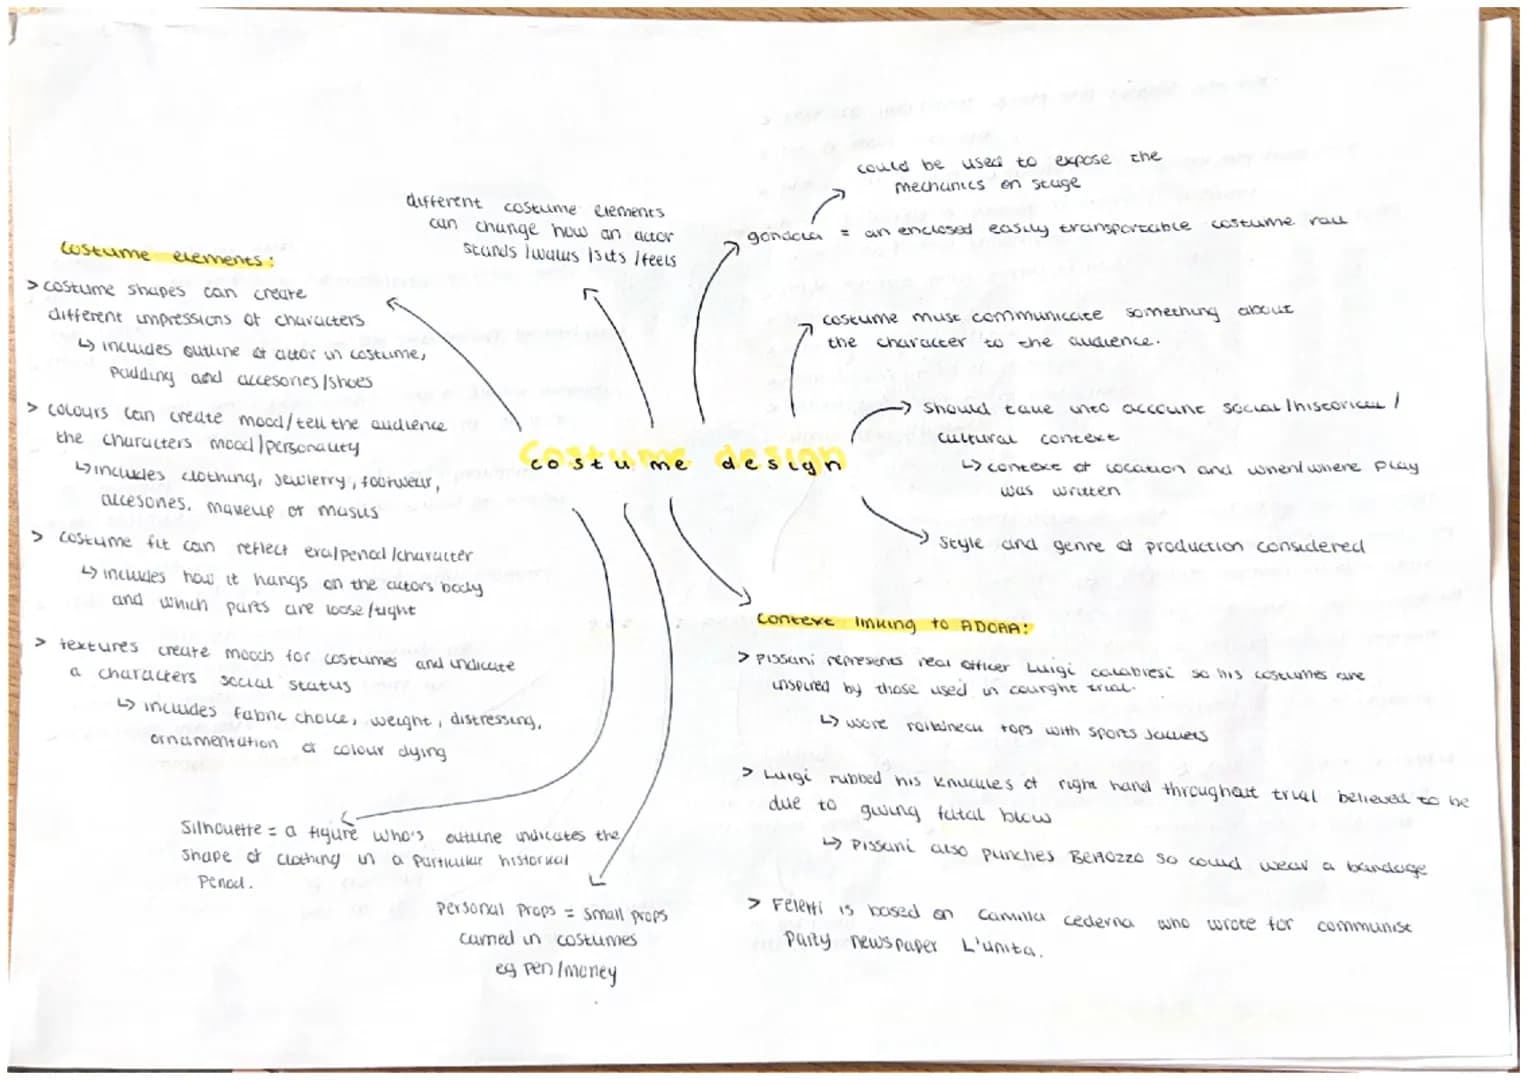 could be used to expose the
mechanics on stage
gondola = an enclosed easily transportable costume rail
different costume elements
can change how an actor
stands /walks /sits /feels
costume elements:
> costume shapes can create
different impressions of characters
↳ includes outline of actor in costume,
padding and accesories/shoes
> colours can create mood/tell the audience
the characters mood/personality
↳ includes clothing, jewlerry, footwear,
accesories, makeup or masks
> costume fit can reflect era/period/character
↳ includes how it hangs on the actors body
and which parts are loose/tight
> textures create moods for costumes and indicate
a characters social status
↳ includes fabric choice, weight, distressing,
ornamentation or colour dying
costume must communicate something about
the character to the audience.
should take into account social/historical/
cultural context
↳ context of location and when/where play
was written
costume design
style and genre of production considered
Silhouette = a figure who's outline indicates the
shape of clothing in a particular historical
period.
personal props = small props
carried in costumes
eg pen/money
context linking to ADOAA:
> Pissani represents real officer Luigi calabresi so his costumes are
inspired by those used in courght trial.
↳ wore rollbneck tops with sports jackets
> Luigi rubbed his knuckles of right hand throughout trial believed to be
due to giving fatal blow
↳ Pissani also punches Bertozzo so could wear a bandage
> Feletti is based on Camilla cederna who wrote for communist
party newspaper L'unita.